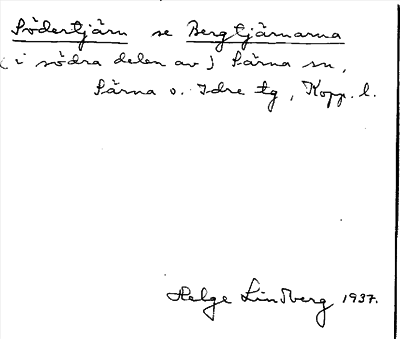 Södertjärn se Bergtjärnarna
(i södra delen av) Särna sn,
Särna o. Idre tg, Kopp. l.
Helge Lindberg 1937.